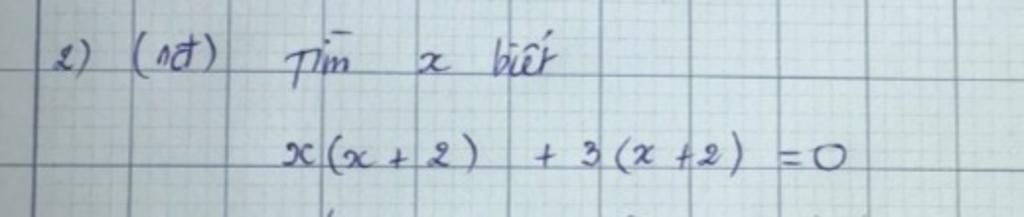 2) (1đ) Tìm x biết
x(x + 2) + 3(x + 2) = 0